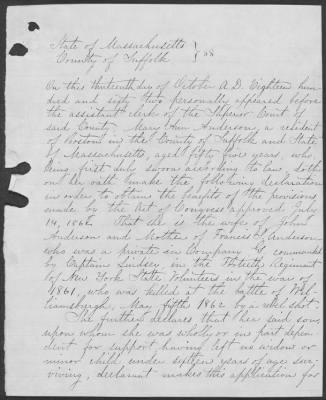 State of Massachusetts
County of Suffolk } ss
On this thirteenth day of October A.D. Eighteen hun-
dred and sixty two personally appeared before
the assistant clerk of the Superior Court of
said County, Mary Ann Anderson, a resident
of Boston in the County of Suffolk and State
of Massachusetts, aged fifty five years, who
being first duly sworn according to law, doth
on her oath make the following declaration
in order to obtain the benefits of the provisions
made by the Act of Congress approved July
14, 1862. That she is the wife of John
Anderson and Mother of Francis Anderson
who was a private in Company commanded
by Captain Lindsey in the Regiment
of New York State Volunteers in the war of
1861, who was killed at the battle of Wil-
liamsburgh, May fifth 1862 by a shot
She further declares that her said son,
upon whom she was wholly or in part depen
dent for support having left no widow or
minor child under sixteen years of age sur-
viving, declarant makes this application for